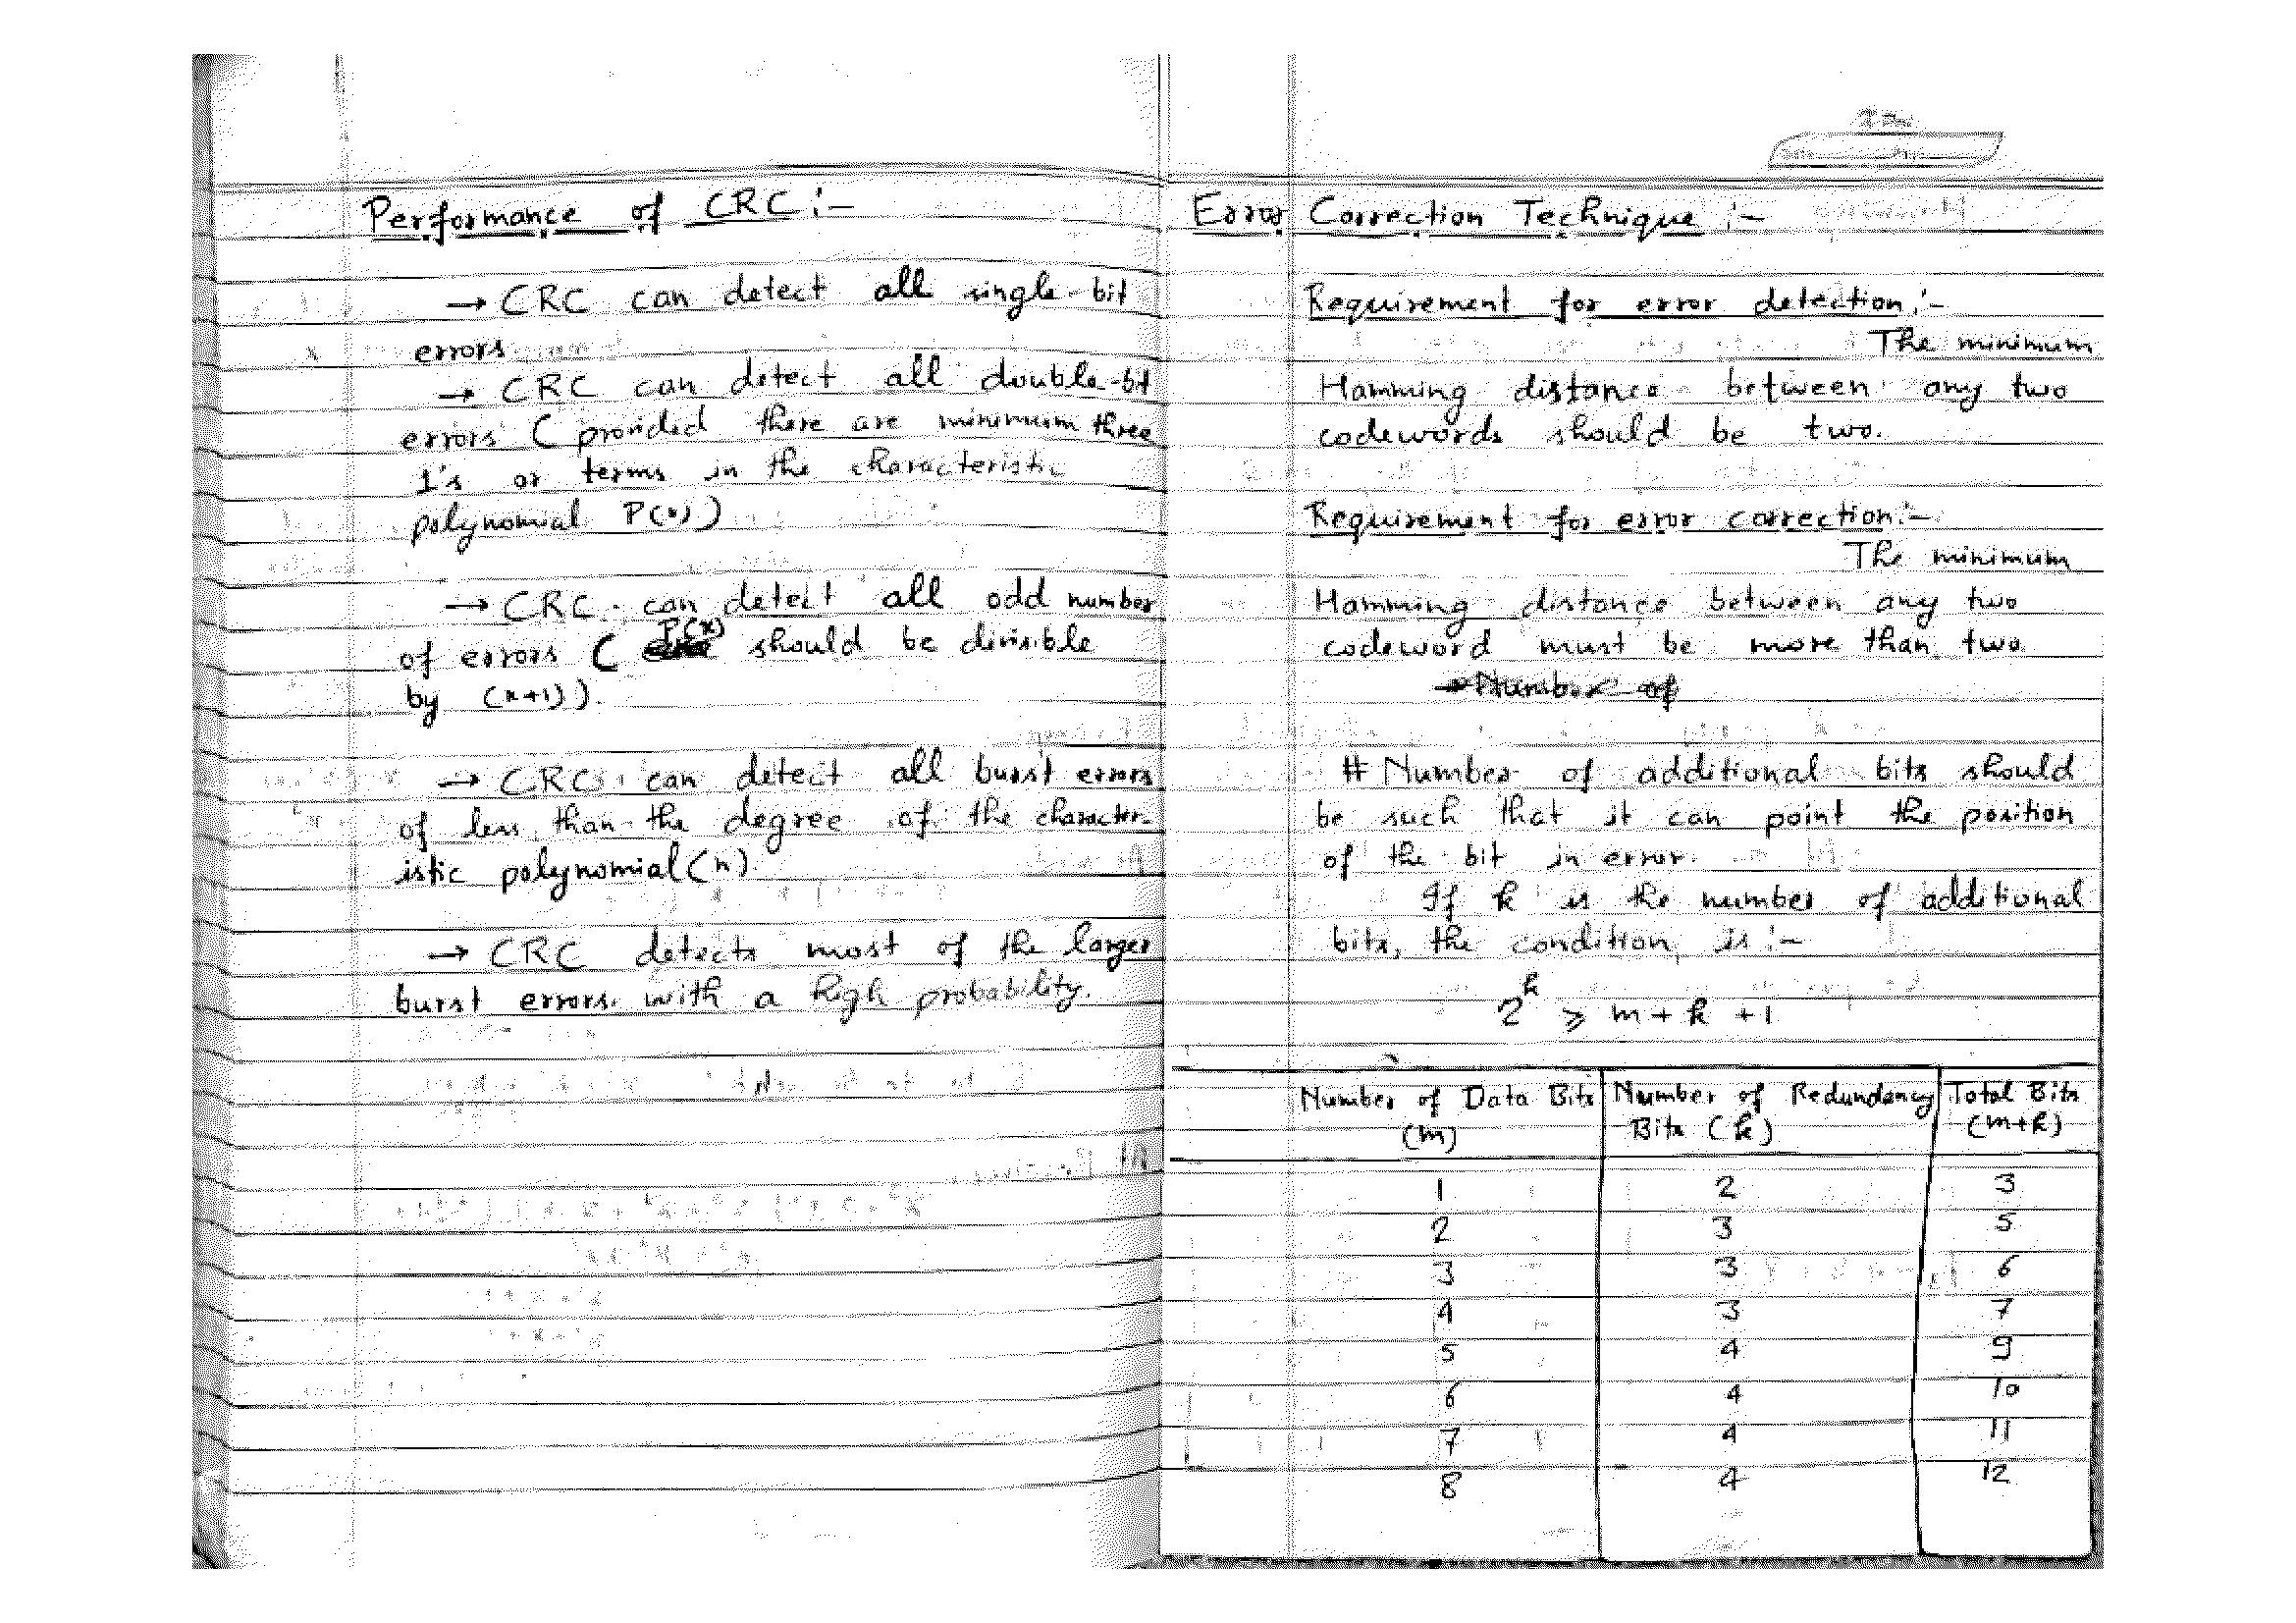 Performance of CRC :-
→ CRC can detect all single-bit
errors
→ CRC can detect all double-bit
errors ( provided there are minimum three
1's or terms in the characteristic
polynomial P(x) )
→ CRC can detect all odd number
of errors ( P(x) should be divisible
by (x+1) ).
→ CRC can detect all burst errors
of less than the degree of the character-
istic polynomial (n).
→ CRC detects most of the larger
burst errors with a high probability.
Error Correction Technique :-
Requirement for error detection :-
The minimum
Hamming distance between any two
codewords should be two.
Requirement for error correction :-
The minimum
Hamming distance between any two
codeword must be more than two.
→ Number of
# Number of additional bits should
be such that it can point the position
of the bit in error.
If k is the number of additional
bits, the condition is :-
2^k ≥ m + k + 1
Number of Data Bits Number of Redundancy Total Bits
(m) Bits (k) (m+k)
1 2 3
2 3 5
3 3 6
4 3 7
5 4 9
6 4 10
7 4 11
8 4 12